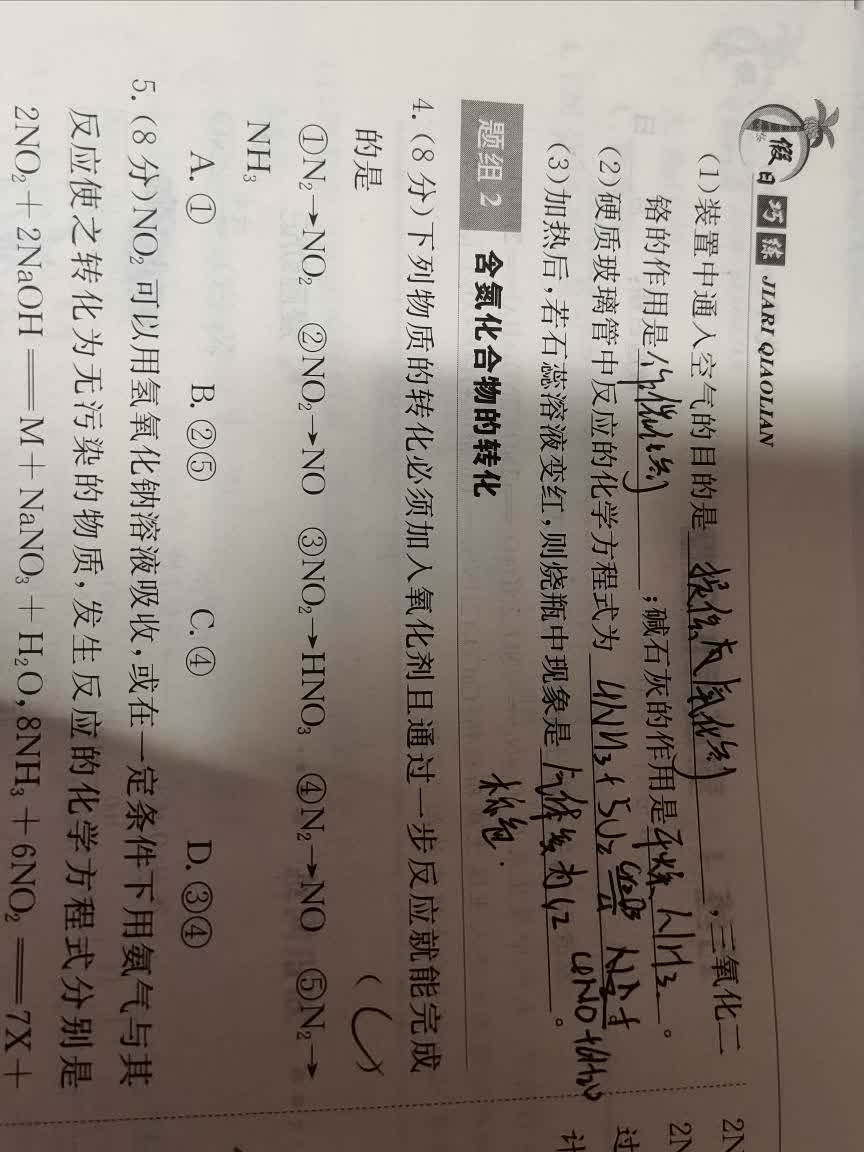 假日巧练 JIARI QIAOLIAN
(1)装置中通入空气的目的是提供氧气,氧化剂,三氧化二
铬的作用是作催化剂;碱石灰的作用是干燥NH₃。
(2)硬质玻璃管中反应的化学方程式为4NH₃+5O₂ Cr₂O₃ △
4NO+6H₂O
(3)加热后,若石蕊溶液变红,则烧瓶中现象是气体变为红
棕色.
题组2 含氮化合物的转化
4.(8分)下列物质的转化必须加入氧化剂且通过一步反应就能完成
的是 (C)
①N₂→NO₂ ②NO₂→NO ③NO₂→HNO₃ ④N₂→NO ⑤N₂→
NH₃
A.① B.②⑤ C.④ D.③④
5.(8分)NO₂可以用氢氧化钠溶液吸收,或在一定条件下用氨气与其
反应使之转化为无污染的物质,发生反应的化学方程式分别是
2NO₂+2NaOH══M+NaNO₃+H₂O,8NH₃+6NO₂══7X+
2N
2N
过
计